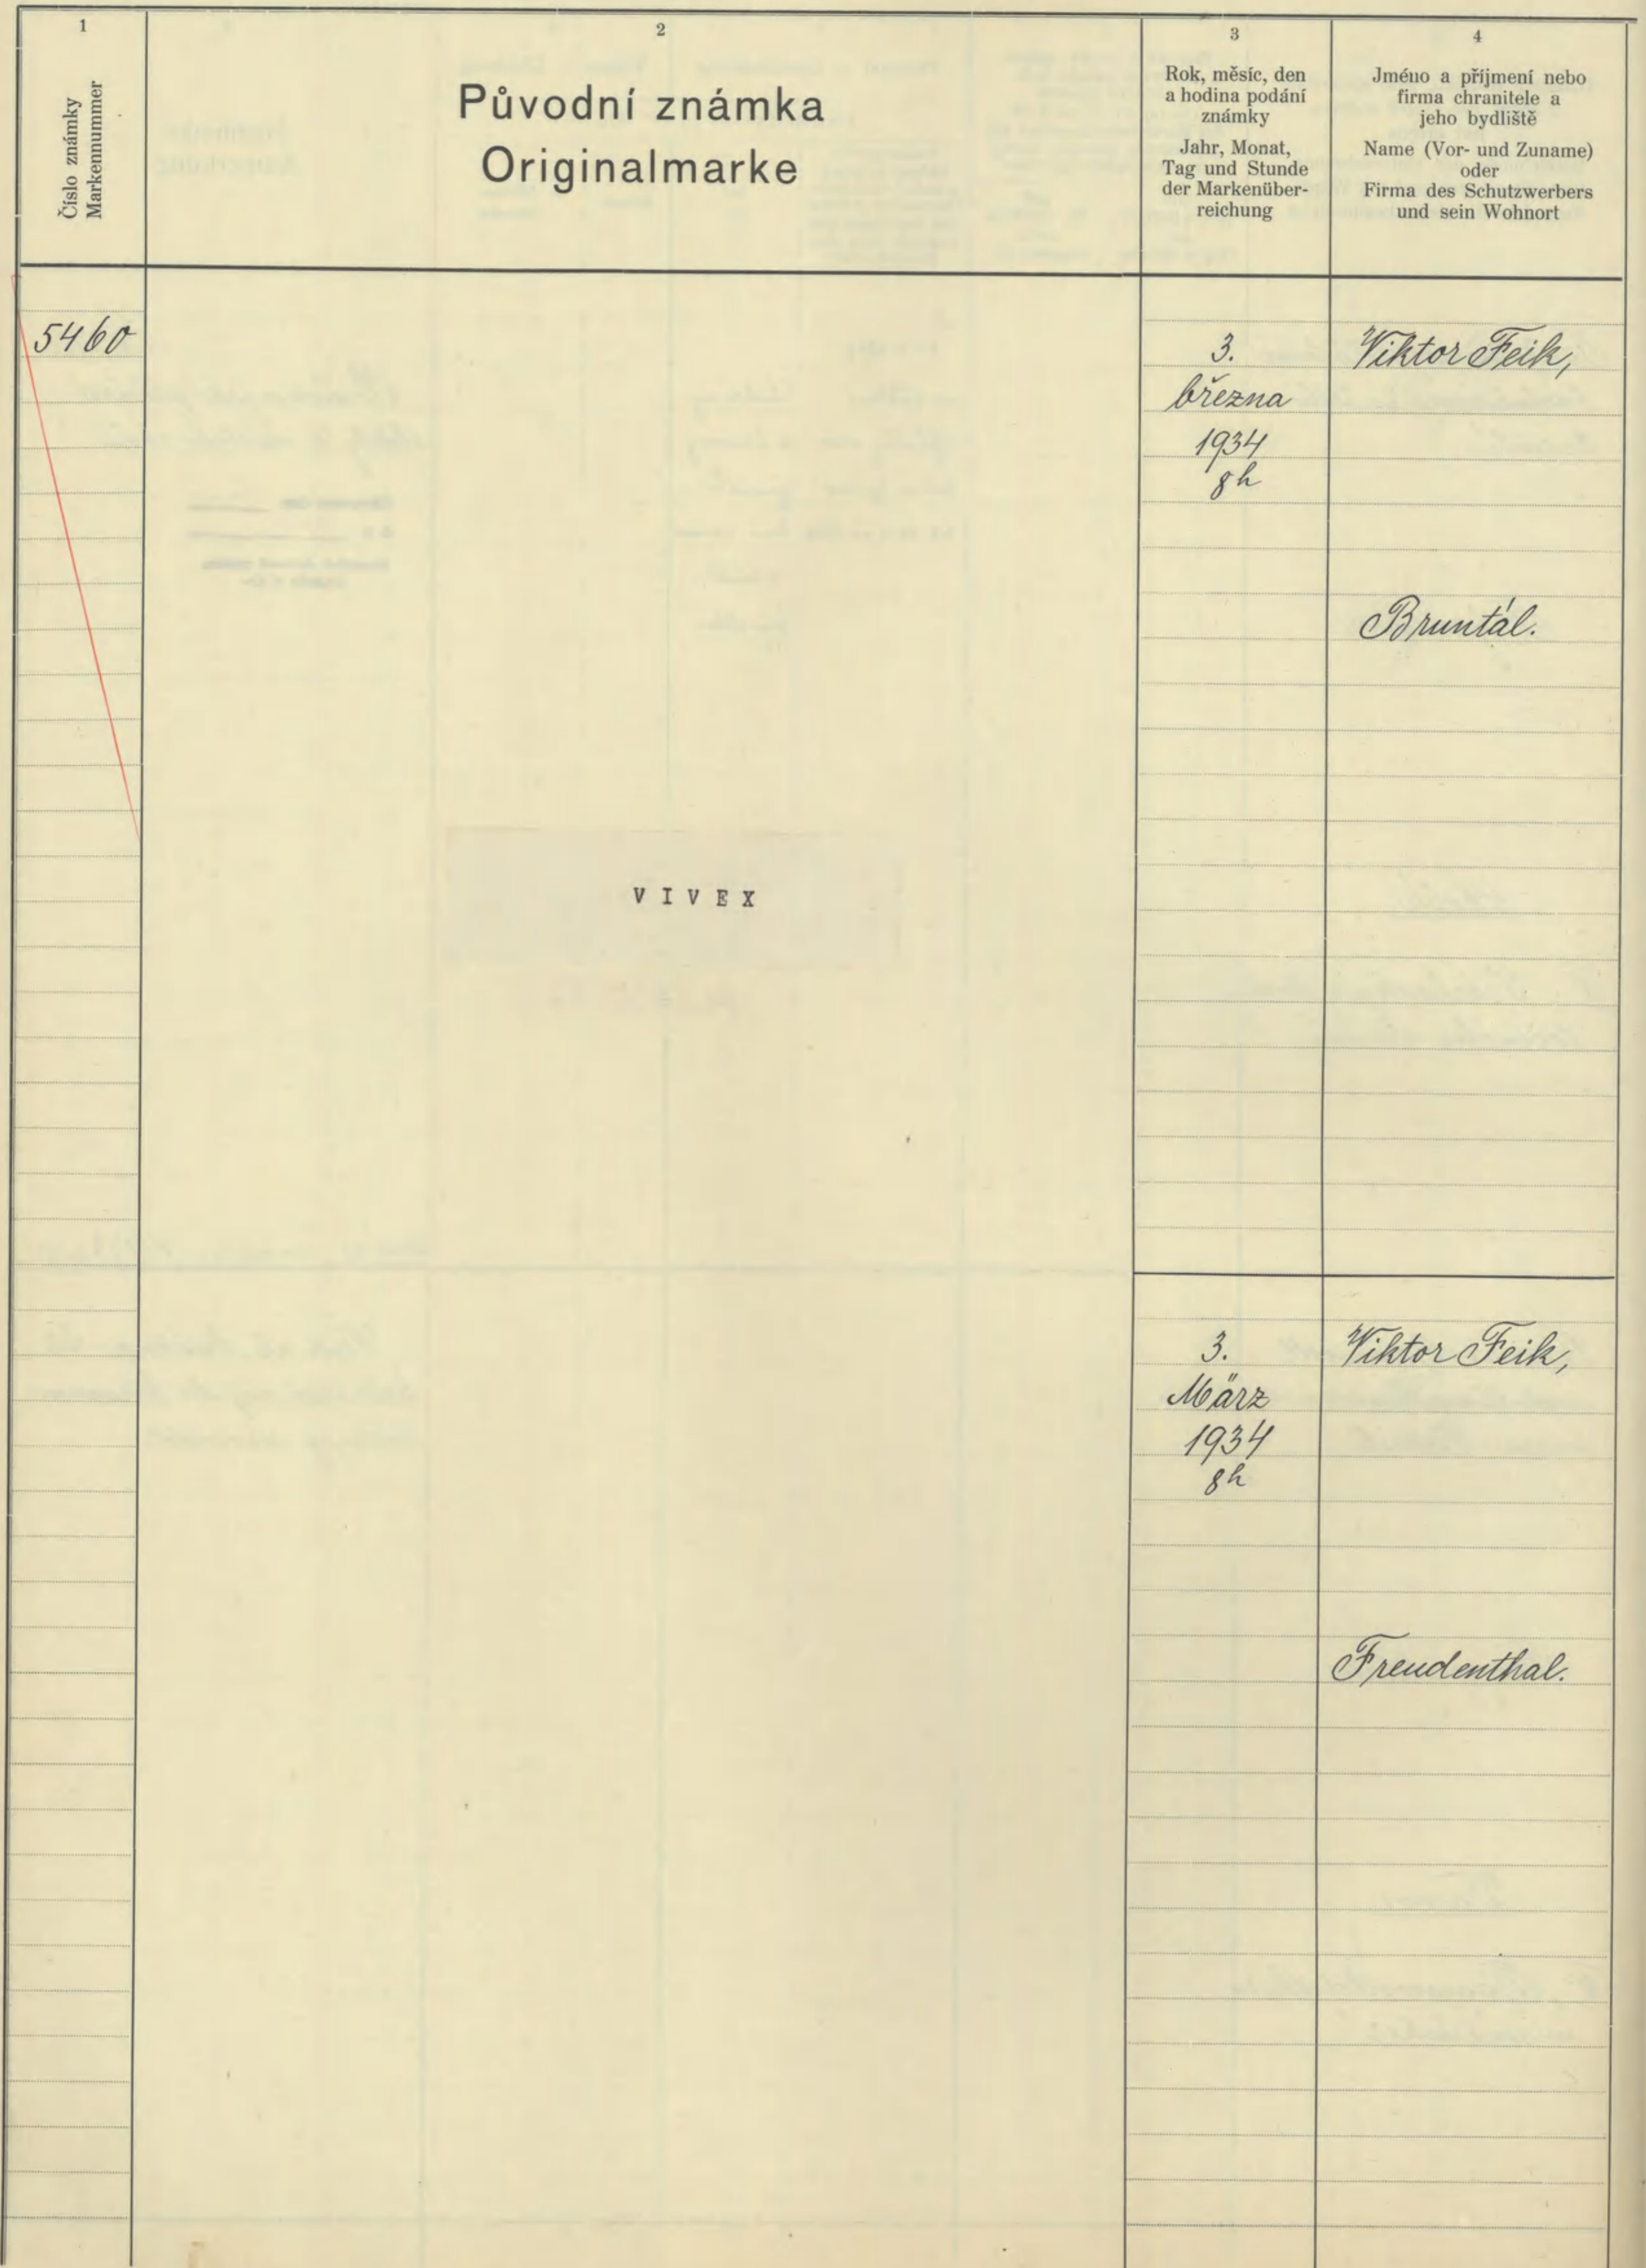 1
Číslo známky
Markennummer
2
Původní známka
Originalmarke
3
Rok, měsíc, den
a hodina podání
známky
Jahr, Monat,
Tag und Stunde
der Markenüber-
reichung
4
Jméno a příjmení nebo
firma chranitele a
jeho bydliště
Name (Vor- und Zuname)
oder
Firma des Schutzwerbers
und sein Wohnort
5460
VIVEX
3.
března
1934
8h
Viktor Feik,
Bruntál.
3.
März
1934
8h
Viktor Feik,
Freudenthal.